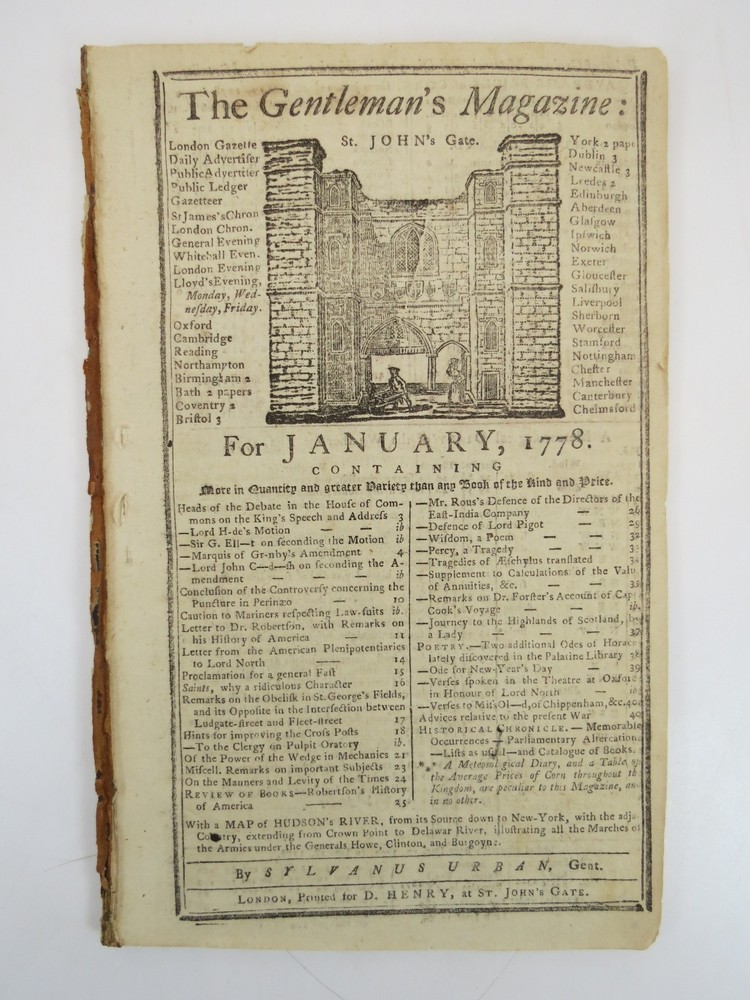 The Gentleman's Magazine:
London Gazette
Daily Advertiſer
Public Advertiſer
Public Ledger
Gazetteer
St James's Chron
London Chron.
General Evening
Whitehall Even.
London Evening
Lloyd's Evening,
Monday, Wed-
neſday, Friday.
Oxford
Cambridge
Reading
Northampton
Birmingham 2
Bath 2 papers
Coventry 2
Briſtol 3
St. JOHN's Gate.
York 2 pape
Dublin 3
Newcaſtle 3
Leedes 2
Edinburgh
Aberdeen
Glaſgow
Ipſwich
Norwich
Exeter
Glouceſter
Saliſbury
Liverpool
Sherborn
Worceſter
Stamford
Nottingham
Cheſter
Mancheſter
Canterbury
Chelmsford
For JANUARY, 1778.
CONTAINING
More in Quantity and greater Variety than any Book of the Kind and Price.
Heads of the Debate in the Houſe of Com-
mons on the King's Speech and Addreſs 3
—Lord H-de's Motion — — ib
—Sir G. Ell—t on ſeconding the Motion ib
—Marquis of Gr-nby's Amendment 4
—Lord John C—d—ſh on ſeconding the A-
mendment — — — ib
Concluſion of the Controverſy concerning the
Puncture in Perinæo — 10
Caution to Mariners reſpecting Law-ſuits ib.
Letter to Dr. Robertſon, with Remarks on
his Hiſtory of America — 11
Letter from the American Plenipotentiaries
to Lord North — 14
Proclamation for a general Faſt 15
Saints, why a ridiculous Character 16
Remarks on the Obeliſk in St. George's Fields,
and its Oppoſite in the Interſection between
Ludgate-ſtreet and Fleet-ſtreet 17
Hints for improving the Croſs Poſts 18
—To the Clergy on Pulpit Oratory ib.
Of the Power of the Wedge in Mechanics 21
Miſcell. Remarks on important Subjects 23
On the Manners and Levity of the Times 24
REVIEW OF BOOKS—Robertſon's Hiſtory
of America — 25
—Mr. Rous's Defence of the Directors of the
Eaſt-India Company — 26
—Defence of Lord Pigot — 29
—Wiſdom, a Poem — — 32
—Percy, a Tragedy — —
—Tragedies of Æſchylus tranſlated
—Supplement to Calculations of the Valu
of Annuities, &c. — — 35
—Remarks on Dr. Forſter's Account of Cap
Cook's Voyage — — ib.
—Journey to the Highlands of Scotland, by
a Lady — — — 37
POETRY.—Two additional Odes of Horace
lately diſcovered in the Palatine Library 38
—Ode for New-Year's Day — 39
—Verſes ſpoken in the Theatre at Oxford
in Honour of Lord North —
—Verſes to Miſs Ol—d, of Chippenham, &c. 40
Advices relative to the preſent War 40
HISTORICAL CHRONICLE.— Memorable
Occurrences — Parliamentary Altercations
—Liſts as uſual—and Catalogue of Books.
*** A Meteorological Diary, and a Table of
the Average Prices of Corn throughout th
Kingdom, are peculiar to this Magazine, an
in no other.
With a MAP of HUDSON's RIVER, from its Source down to New-York, with the adja
Country, extending from Crown Point to Delawar River, illuſtrating all the Marches of
the Armies under the Generals Howe, Clinton, and Burgoyne.
By SYLVANUS URBAN, Gent.
LONDON, Printed for D. HENRY, at ST. JOHN'S GATE.